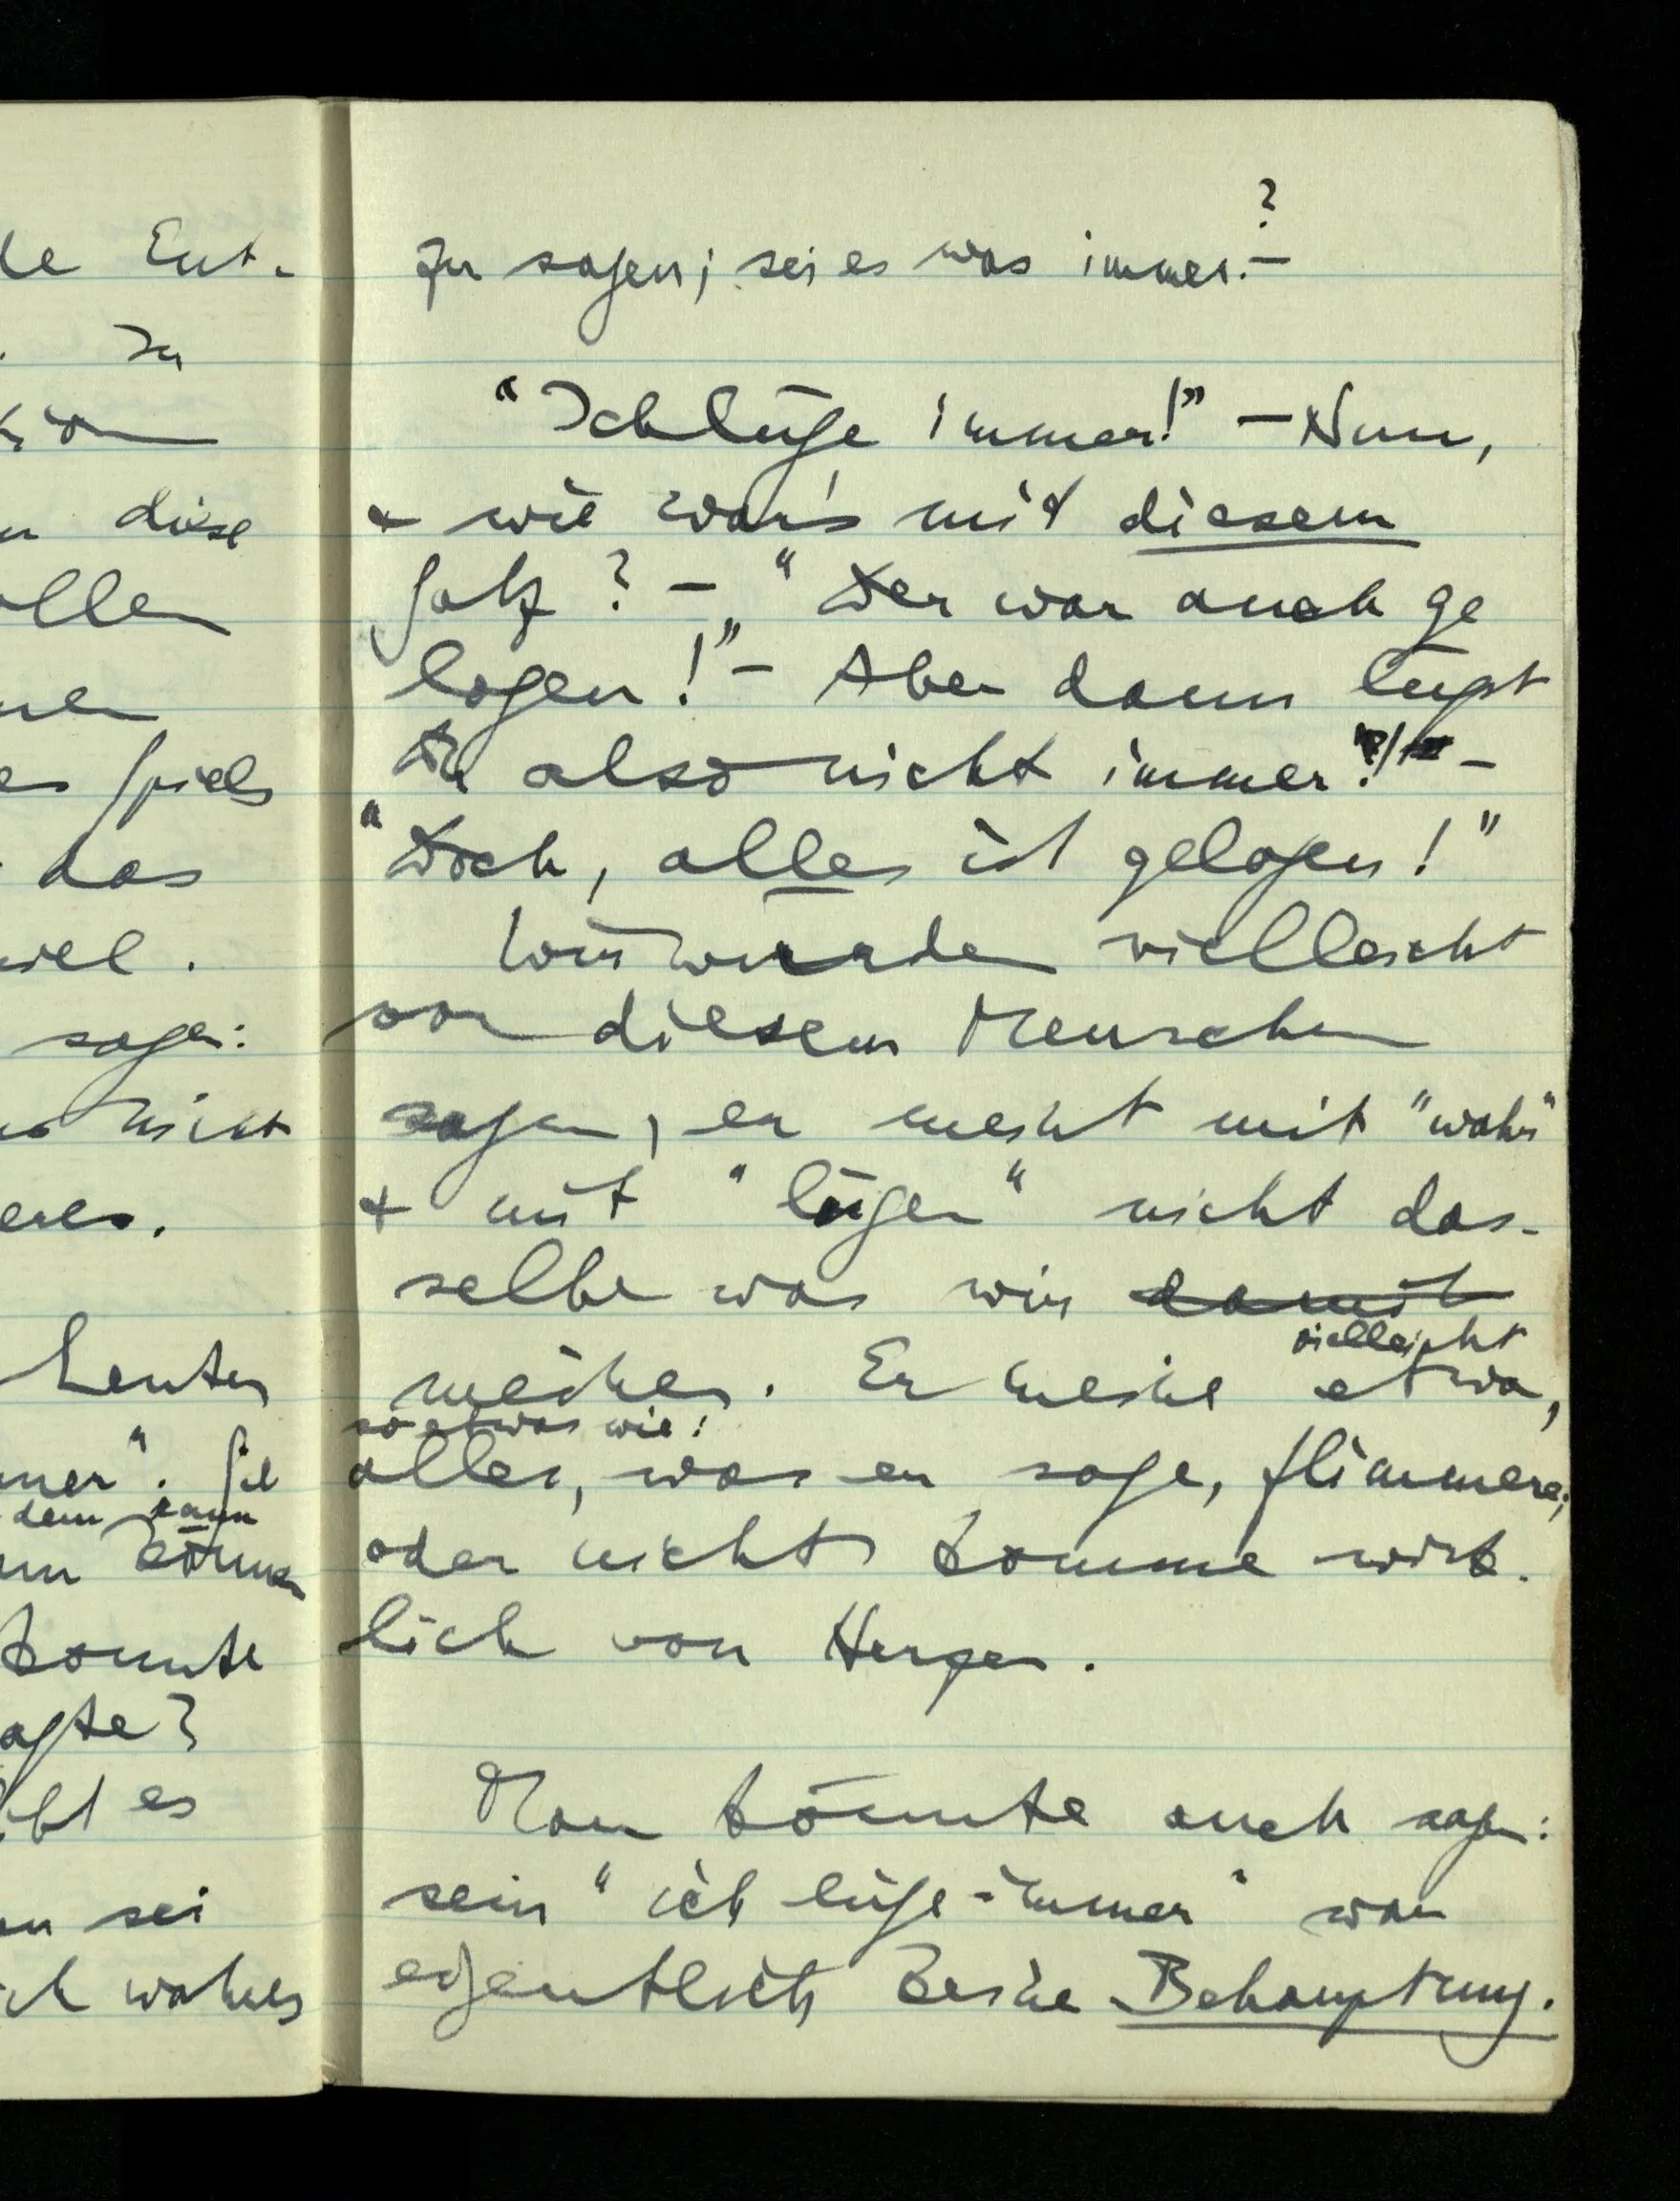 de Ent-
zu
diese
ollen
nen
es Spiels
das
viel.
sagen:
nicht
eres.
Leuten
mer". Sie
dem kann
können
konnte
agte?
es
sei
wahres
?
zu sagen; sei es was immer. –
"Ich lüge immer!" – Nun,
& wie war's mit diesem
Satz? – "Der war auch ge
logen!" – Aber dann lügst
Du also nicht immer?! –
"Doch, alles ist gelogen!"
Wir würden vielleicht
von diesem Menschen
sagen, er meint mit "wahr"
& mit "lügen" nicht das-
selbe was wir damit
vielleicht
meinen. Er meine etwa,
so etwas wie:
alles, was er sage, flimmere;
oder nichts komme wirk-
lich von Herzen.
Man könnte auch sagen:
sein "ich lüge immer" war
eigentlich keine Behauptung.